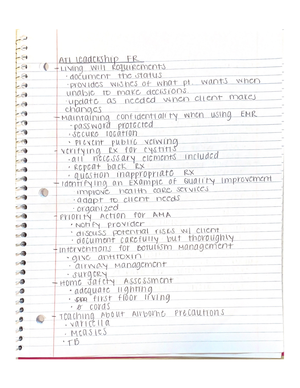 ATI Leadership FR
- Living Will Requirements
· document the status
· provides wishes of what pt. wants when
unable to make decisions
· update as needed when client makes
changes
- Maintaining confidentiality when using EMR
· password protected
· secure location
· Prevent public viewing
- Verifying Rx for cystitis
· all necessary elements included
· Repeat back Rx
· question inappropriate Rx
- Identifying an Example of Quality Improvement
· improve health care services
· adapt to client needs
· organized
- Priority Action for AMA
· Notify provider
· discuss potential risks w/ client
· document carefully but thoroughly
- Interventions for Botulism Management
· give antitoxin
· airway management
· surgery
- Home Safety Assessment
· adequate lighting
· first floor living
· cords
- Teaching About Airborne Precautions
· varicella
· Measles
· TB